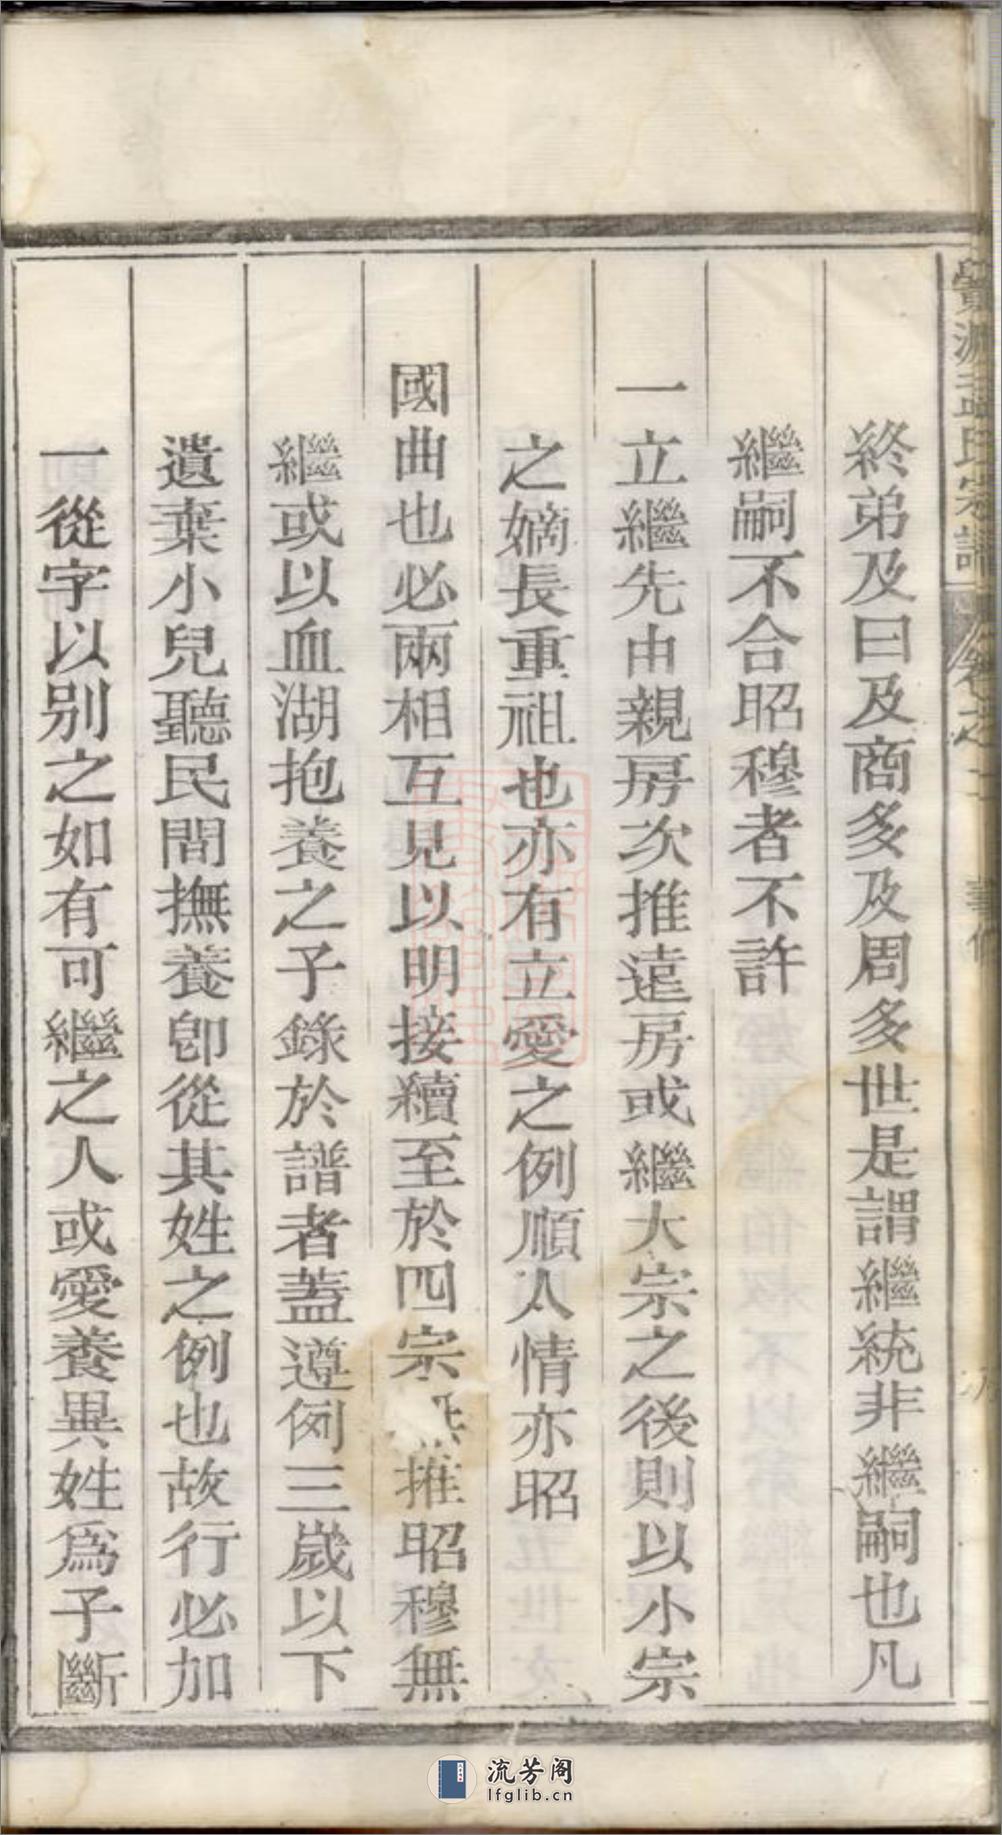 終弟及曰及商多及周多世是謂繼統非繼嗣也凡
繼嗣不合昭穆者不許
一立繼先由親房次推遠房或繼大宗之後則以小宗
之嫡長重祖也亦有立愛之例順人情亦昭
國曲也必兩相互見以明接續至於四宗推昭穆無
繼或以血湖抱養之子錄於譜者蓋遵例三歲以下
遺棄小兒聽民間撫養卽從其姓之例也故行必加
一從字以別之如有可繼之人或愛養異姓爲子斷
流芳阁
lfglib.cn